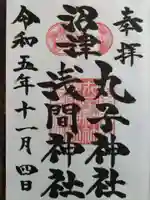 奉拝
丸子神社
沼津
浅間神社
令和五年十一月四日